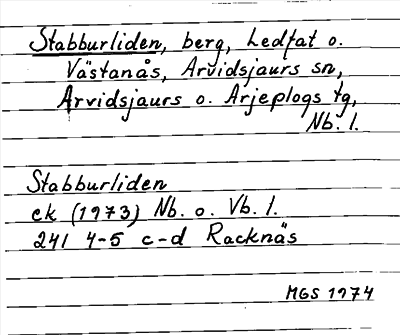 Stabburliden, berg, Ledfat o.
Västanås, Arvidsjaurs sn,
Arvidsjaurs o. Arjeplogs tg,
Nb. l.
Stabburliden
ek (1973) Nb. o. Vb. l.
241 4-5 c-d Racknäs
MGS 1974